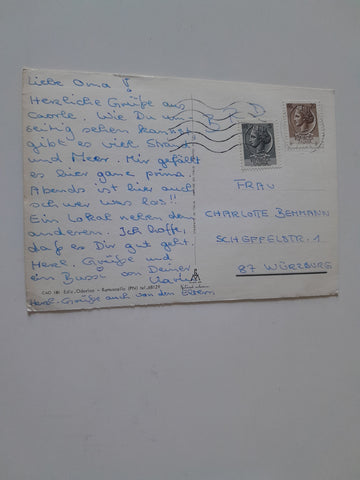 Liebe Oma!
Herzliche Grüße aus
Caorle. Wie Du vor-
seitig sehen kannst
gibt es viel Strand
und Meer. Mir gefällt
es hier ganz prima.
Abends ist hier auch
schwer was los!!
Ein Lokal neben dem
anderem. Ich hoffe,
daß es Dir gut geht.
Herzl. Grüße und
ein Bussi von Deiner
Herzl. Grüße auch von den Eltern
CAO 181 Ediz. Odorico - Ramuscello (PN)
FRAU
CHARLOTE BEHMANN
SCHEFFELSTR. 1
87 WÜRZBURG